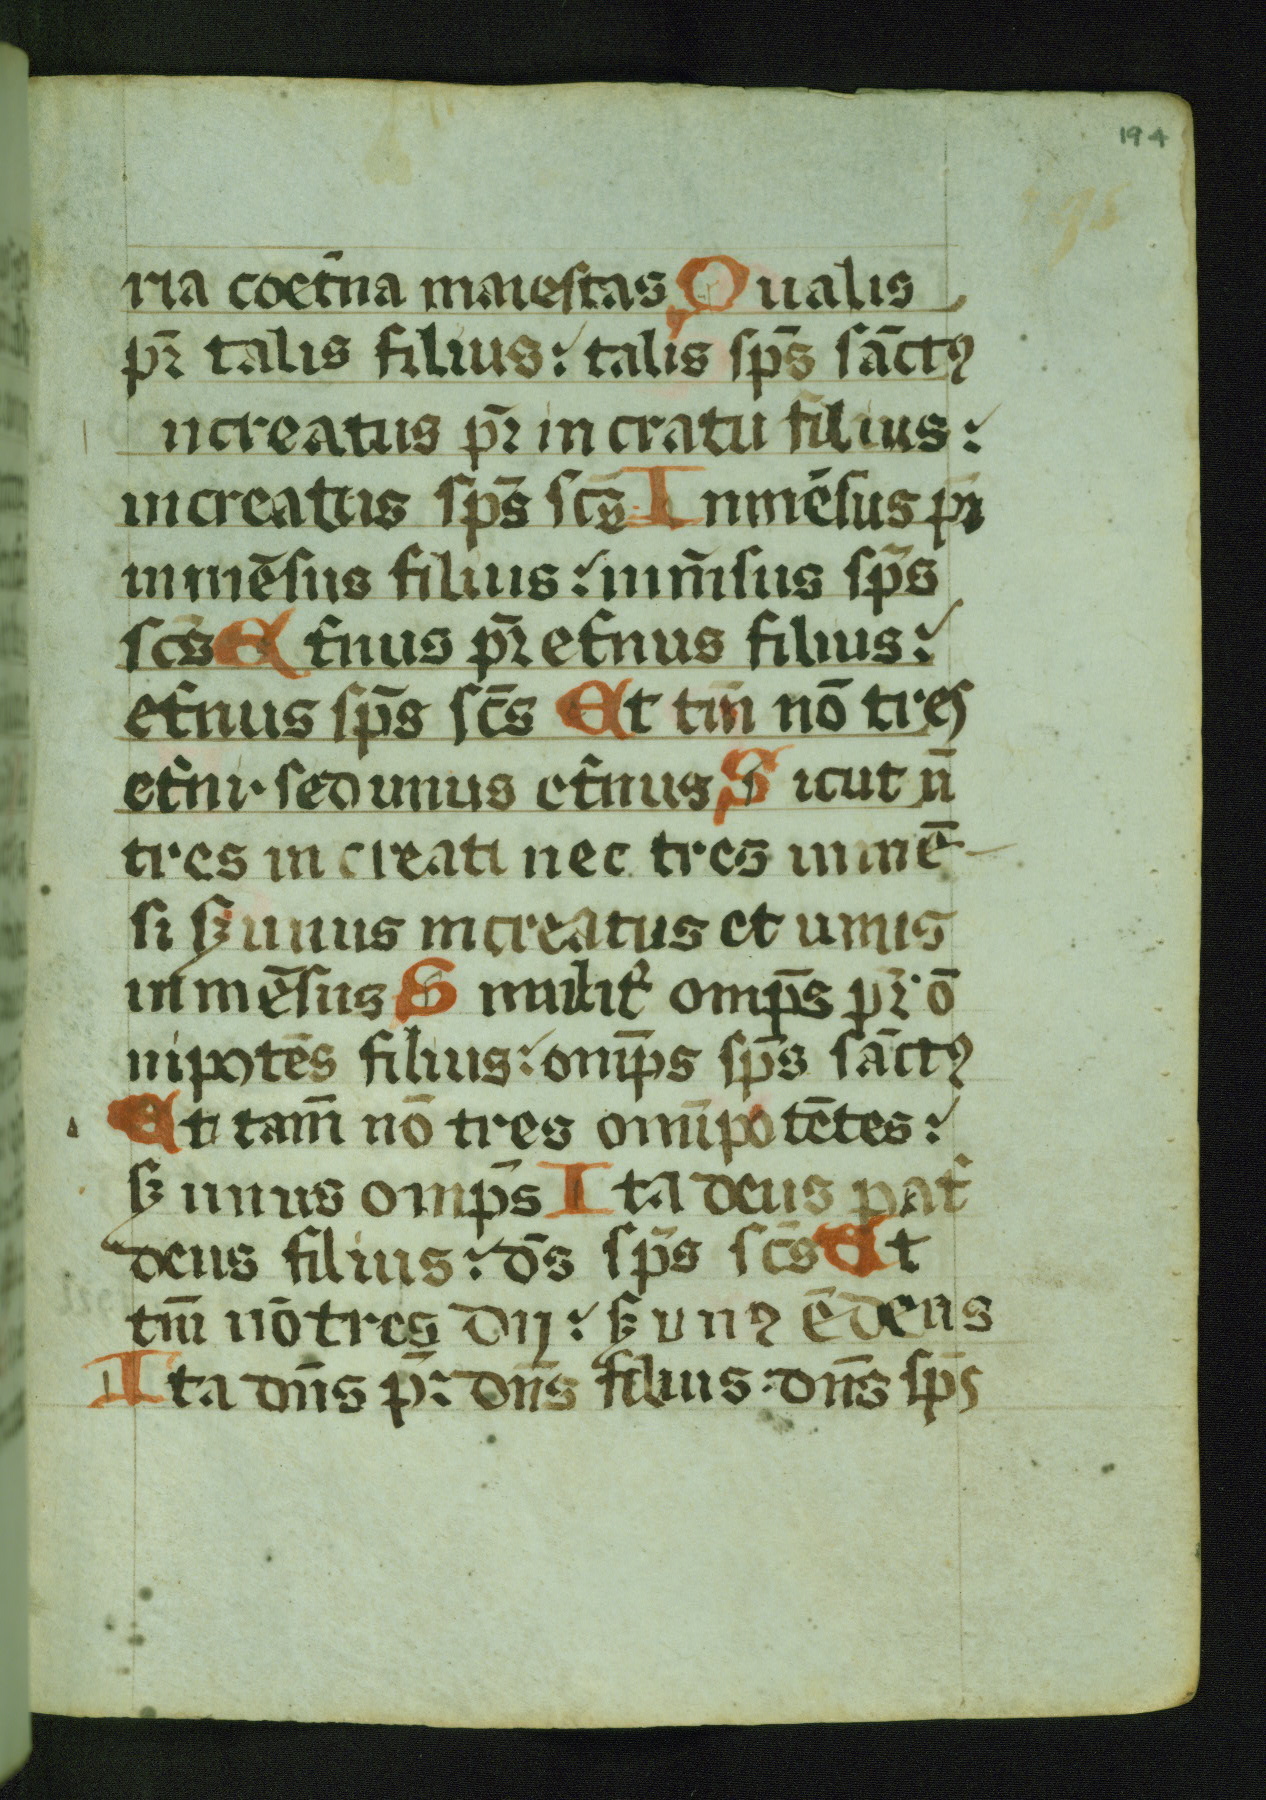 194
ria coet̄na maiestas Qualis
pr̄ talis filius: talis sp̄s sāctꝰ
ncreatus pr̄ in cratu filius:
increatus sp̄s sc̄s Inmēsus pr̄
inmēsus filius: inm̄sus sp̄s
sc̄s Et̄nus pr̄ et̄nus filius:
et̄nus sp̄s sc̄s Et tm̄ nō tres
et̄ni· sed unus et̄nus Sicut n̄
tres in creati nec tres inmē-
si sꝫ unus increatus et unus
inmēsus Similit̄ omp̄s pr̄· ō
nipotēs filius: omp̄s sp̄s sāctꝰ
Et tam̄ nō tres omīpotētes:
sꝫ unus omp̄s Ita deus pat̄
deus filius: ds̄ sp̄s sc̄s Et
tm̄ nō tres dij: sꝫ unꝰ ē deus
Ita dn̄s pr̄: dn̄s filius: dn̄s sp̄s